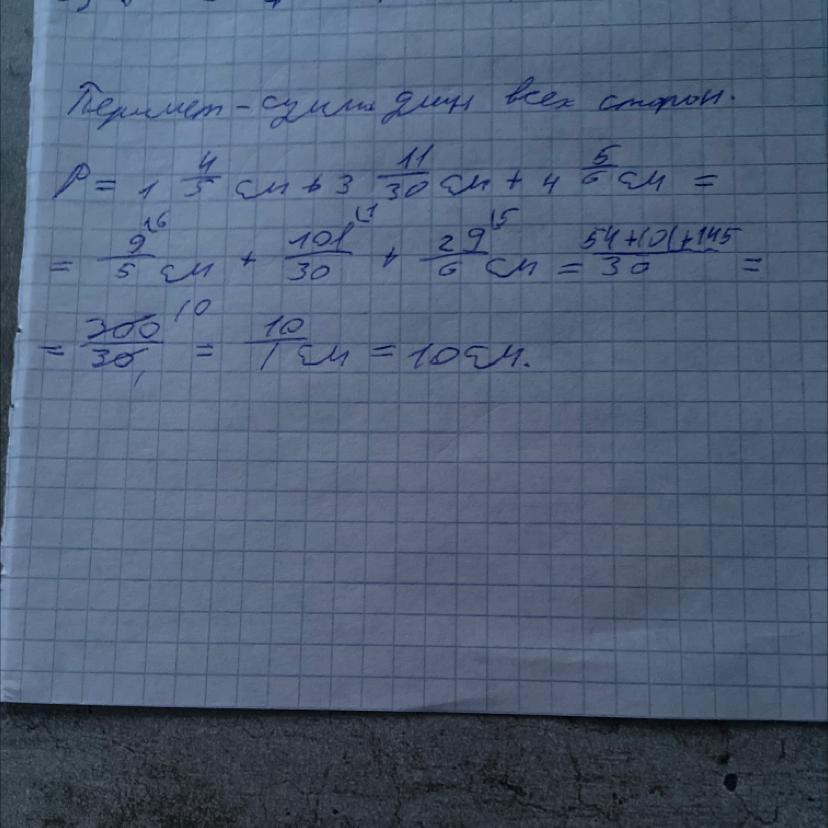 Перимет - сумма длин всех сторон.
P = 1 4/5 см + 3 11/30 см + 4 5/6 см =
= 9/5 \6 см + 101/30 \1 + 29/6 \5 см = 54+101+145/30 =
= 300/30 10 1 = 10/1 см = 10 см.